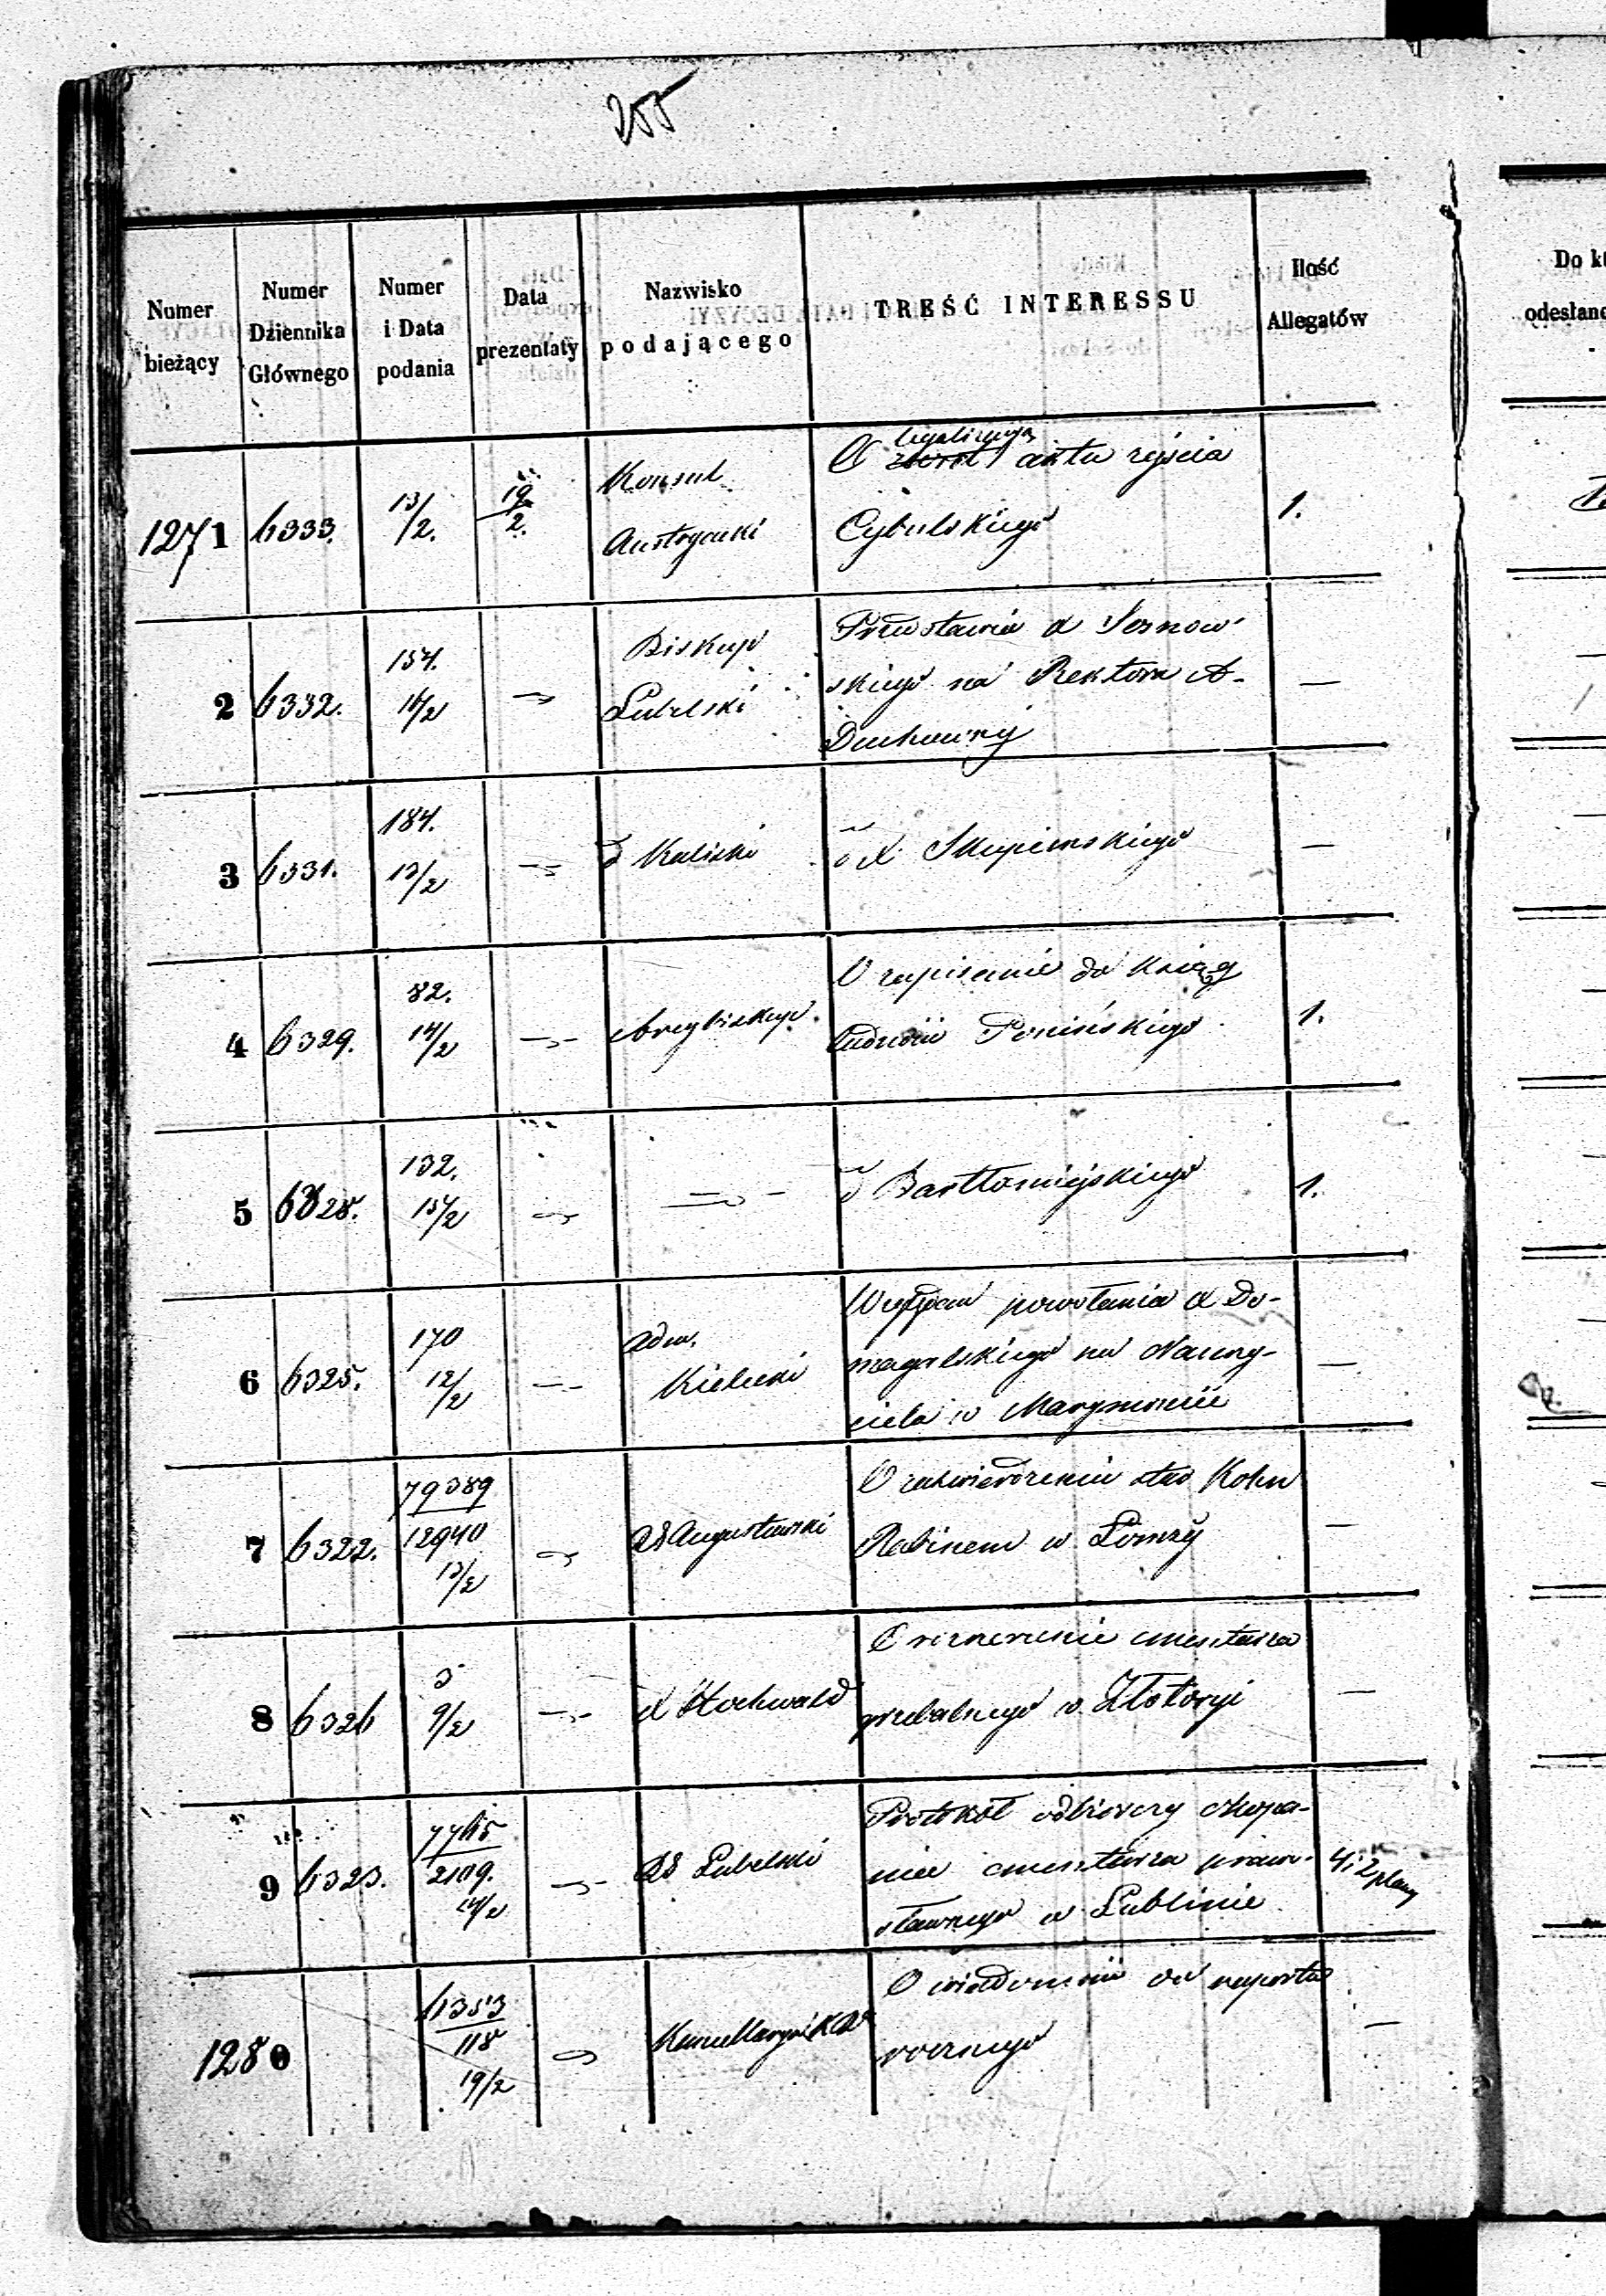 255
Numer bieżący
Numer Dziennika Głównego
Numer i Data podania
Data prezentaty
Nazwisko podającego
TREŚĆ INTERESSU
Ilość Allegatów
Do kt
odesłano
1271 6333. 13/2. 19/2. Konsul Austryacki
O legalizacyą aktu zejścia
Cybulskiego
1.
2 6332. 154. 14/2 Biskup Lubelski
Przedstawia X Sosnow-
skiego na Rektora A.
Duchownej
—
3 6331. 184. 13/2 d Kaliski
d X. Skupieńskiego
—
4 6329. 82. 14/2 Arcybiskup.
O zapisanie do ksiąg
ludności Ponińskiego
1.
5 6328. 132. 15/2
d Bartłomiejskiego
1.
6 6325. 170 12/2 Adm. Kielecki
powołania X Do-
magalskiego na Nauczy-
ciela w Marymoncie
—
7 6322. 79389 12940 13/2 RG Augustowski
O zatwierdzeniu Kohn
Rabinem w Łomży
—
8 6326 5 9/2 X Hochwald
cmentarza
grzebalnego w Złotoryi
—
9 6323. 2109. 14/2 RG Lubelski
Protokół odbiorczy
cmentarza prawo-
sławnego w Lublinie
4 i 2 plany
1280 6353 118 19/2 Kancellarya
O wiadomości do raportu
rocznego
—